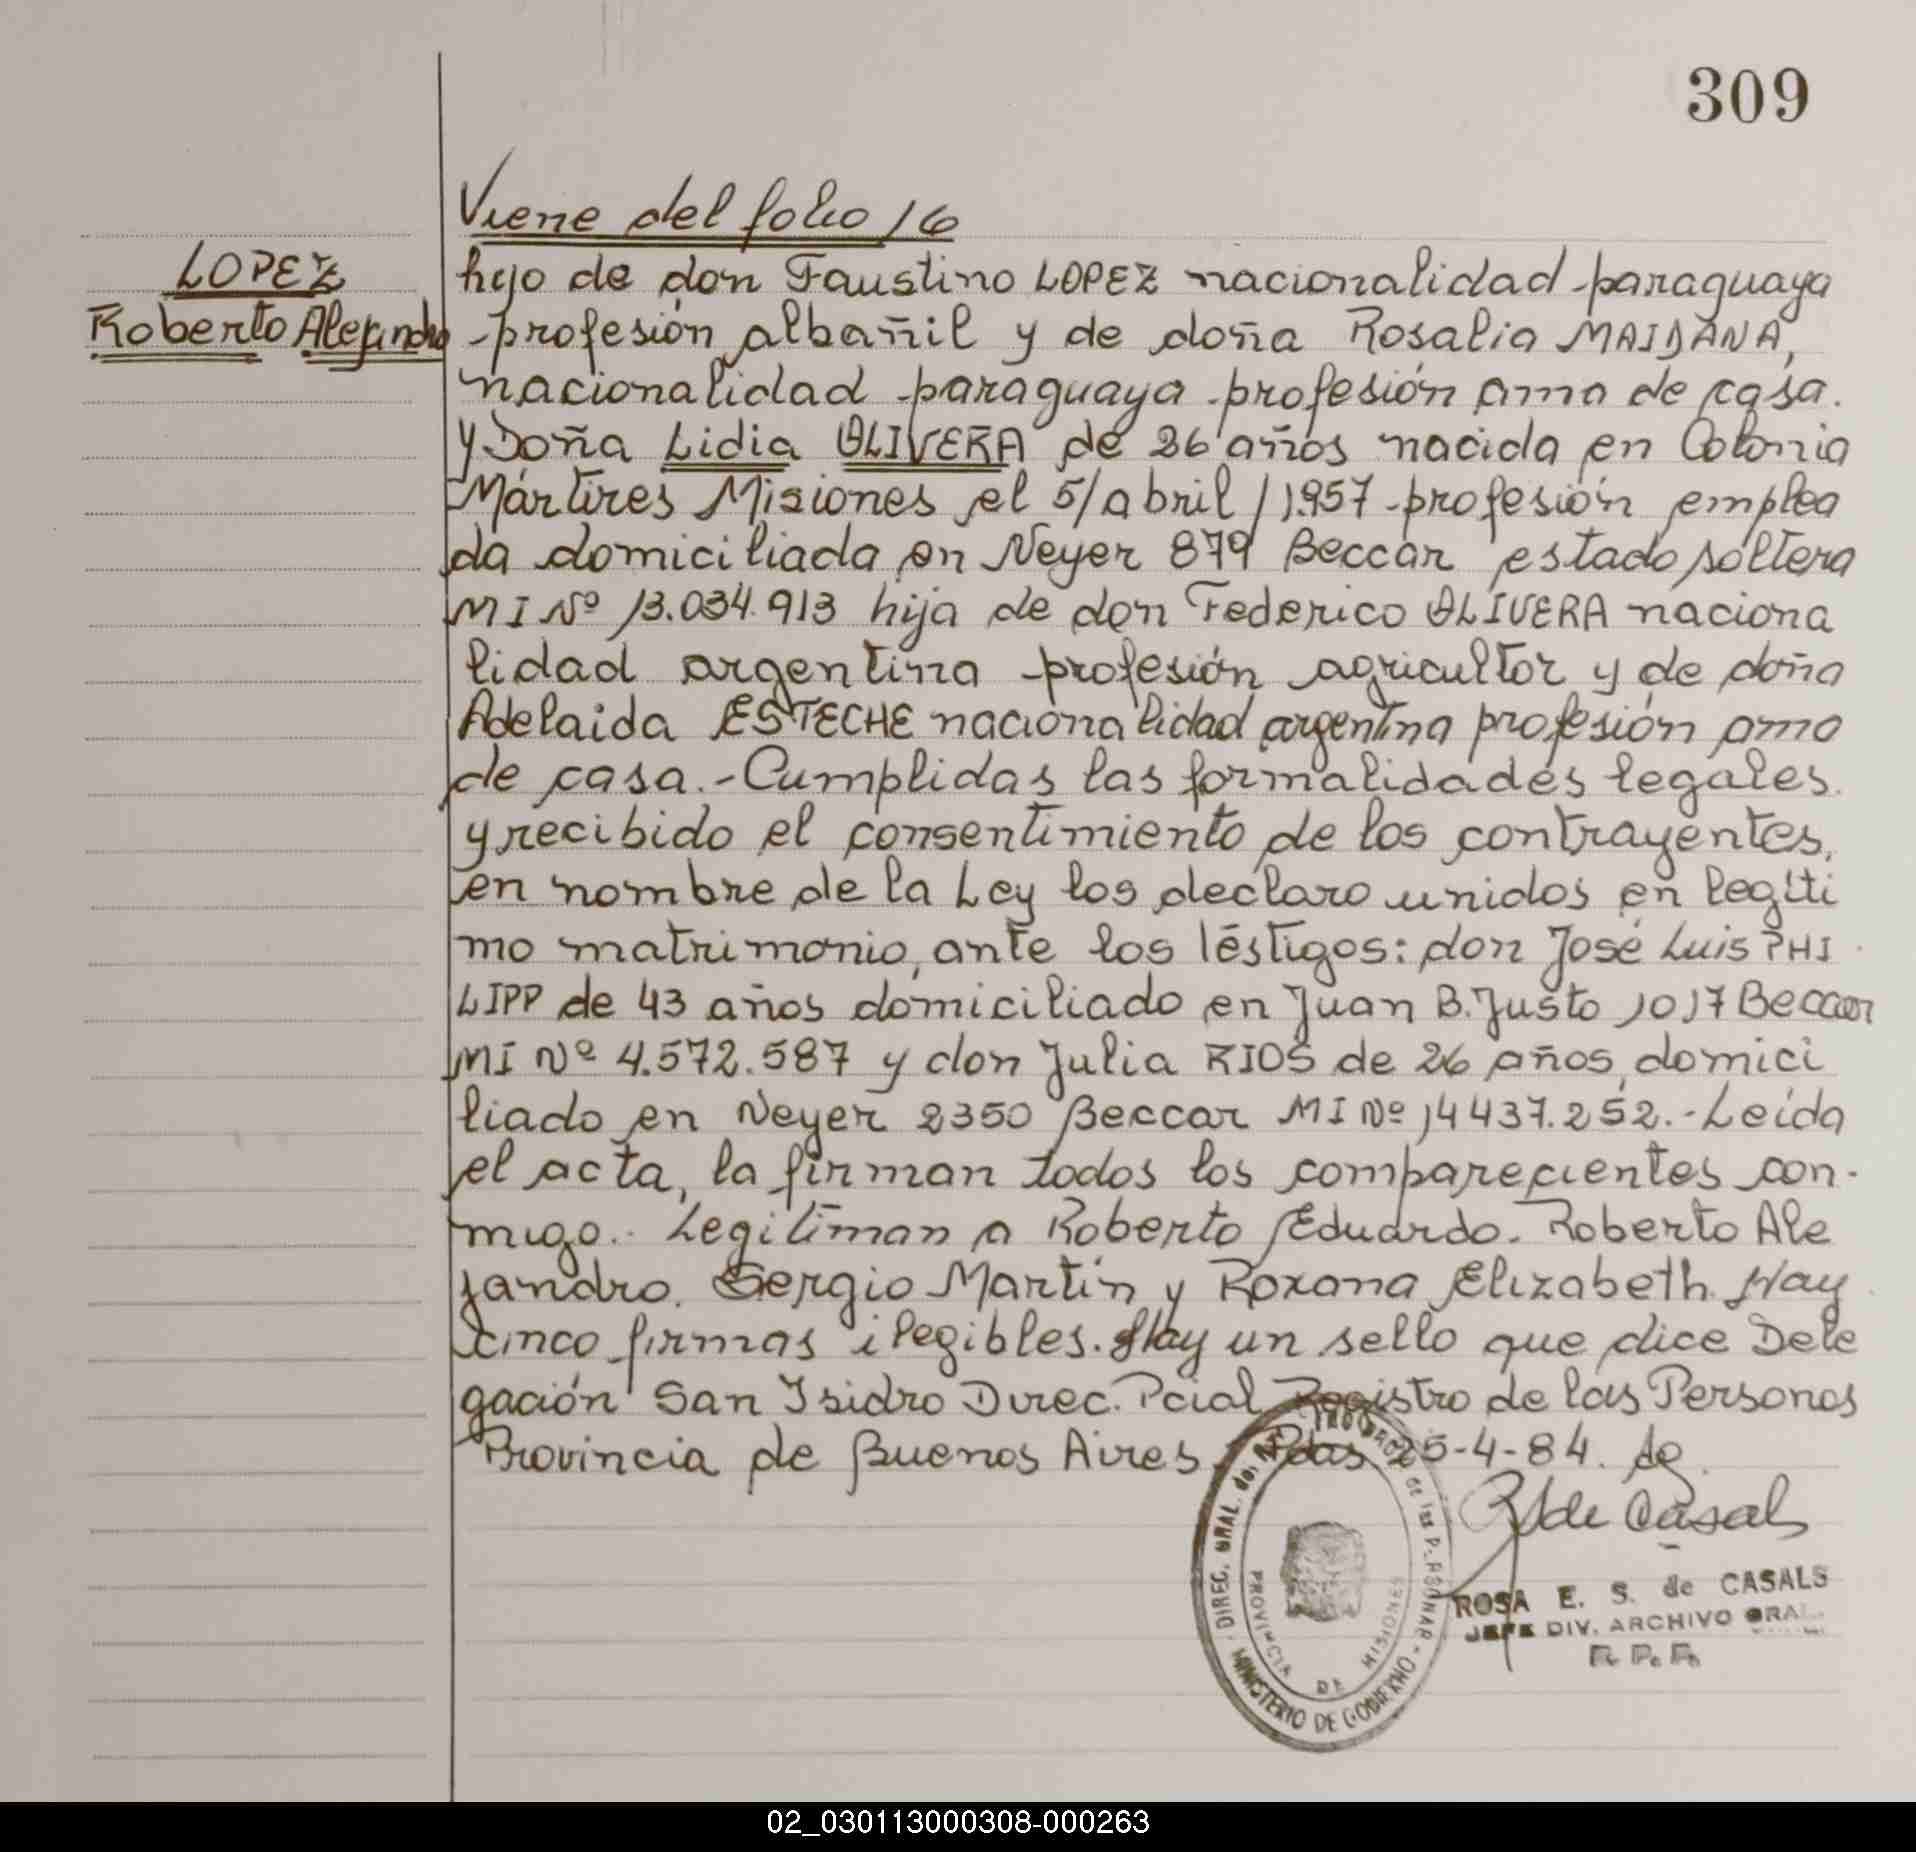 309
Viene del folio 16
LOPEZ
Roberto Alejandro
hijo de don Faustino LOPEZ nacionalidad paraguaya
profesión albañil y de doña Rosalia MAIDANA,
nacionalidad paraguaya profesión ama de casa.
y Doña Lidia OLIVERA de 26 años nacida en Colonia
Mártires Misiones el 5/abril/1.957 profesión emplea
da domiciliada en Neyer 879 Beccar estado soltera
MI Nº 13.034.913 hija de don Federico OLIVERA naciona
lidad argentina profesión agricultor y de doña
Adelaida ESTECHE nacionalidad argentina profesión ama
de casa.- Cumplidas las formalidades legales.
y recibido el consentimiento de los contrayentes,
en nombre de la Ley los declaro unidos en legíti
mo matrimonio, ante los téstigos: don José Luis PHI
LIPP de 43 años domiciliado en Juan B. Justo 1017 Beccar
MI Nº 4.572.587 y don Julia RIOS de 26 años, domici
liado en Neyer 2350 Beccar MI Nº 14437.252.- Leída
el acta, la firman todos los comparecientes con-
migo.- Legitiman a Roberto Eduardo. Roberto Ale
jandro. Sergio Martín y Roxana Elizabeth. Hay
cinco firmas ilegibles. Hay un sello que dice Dele
gación San Isidro Direc. Pcial Registro de las Personas
Provincia de Buenos Aires. Pdas 25-4-84.
R S de Casals
DIREC. GRAL. de las PERSONAS
MINISTERIO DE GOBIERNO
PROVINCIA DE MISIONES
ROSA E. S. de CASALS
JEFE DIV. ARCHIVO GRAL.
R. P. P.
02_030113000308-000263